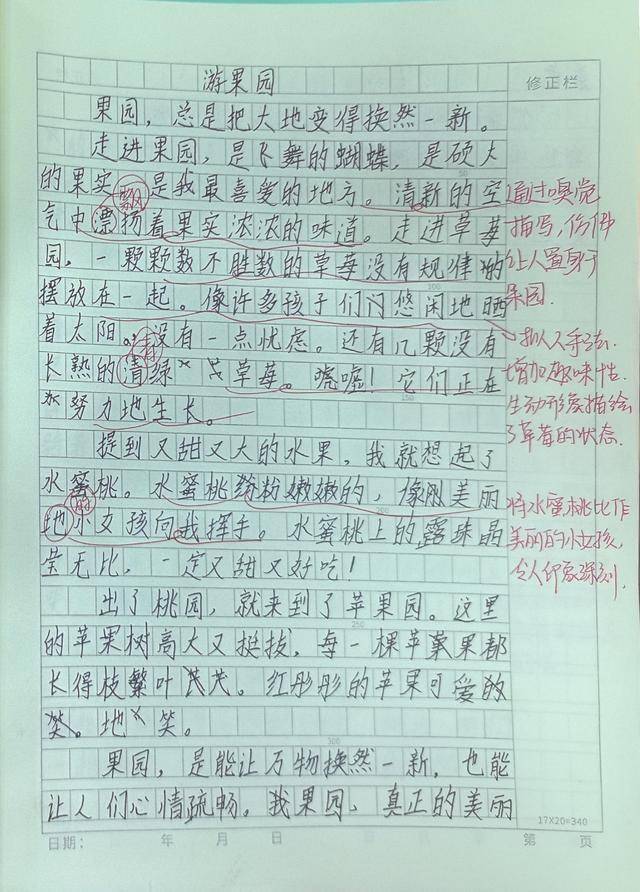 游果园
修正栏
果园，总是把大地变得换然一新。
走进果园，是飞舞的蝴蝶，是硕大
的果实
飘
是我最喜爱的地方。清新的空
气中漂扬着果实浓浓的味道。走进草莓
园，一颗颗数不胜数的草莓没有规律的
摆放在一起。像许多孩子们闪悠闲地晒
着太阳。没有一点忧虑。还有几颗没有
青
长熟的清绿草莓。唬嘘！它们正在
努力地生长。
提到又甜又大的水果，我就想起了
水蜜桃。水蜜桃粉粉嫩嫩的，像刚美丽
的
地小女孩向我挥手。水蜜桃上的露珠晶
莹无比，一定又甜又好吃！
出了桃园，就来到了苹果园。这里
的苹果树高大又挺拔，每一棵苹果都
长得枝繁叶茂。红彤彤的苹果可爱的
笑。地笑。
果园，是能让万物换然一新，也能
让人们心情疏畅。我果园、真正的美丽
通过嗅觉
描写，仿佛
让人置身于
果园.
拟人手法.
增加趣味性.
生动形象描绘
了草莓的状态.
将水蜜桃比作
美丽的小女孩，
令人印象深刻.
50
100
150
200
250
300
17X20=340
日期： 年 月 日 第 页